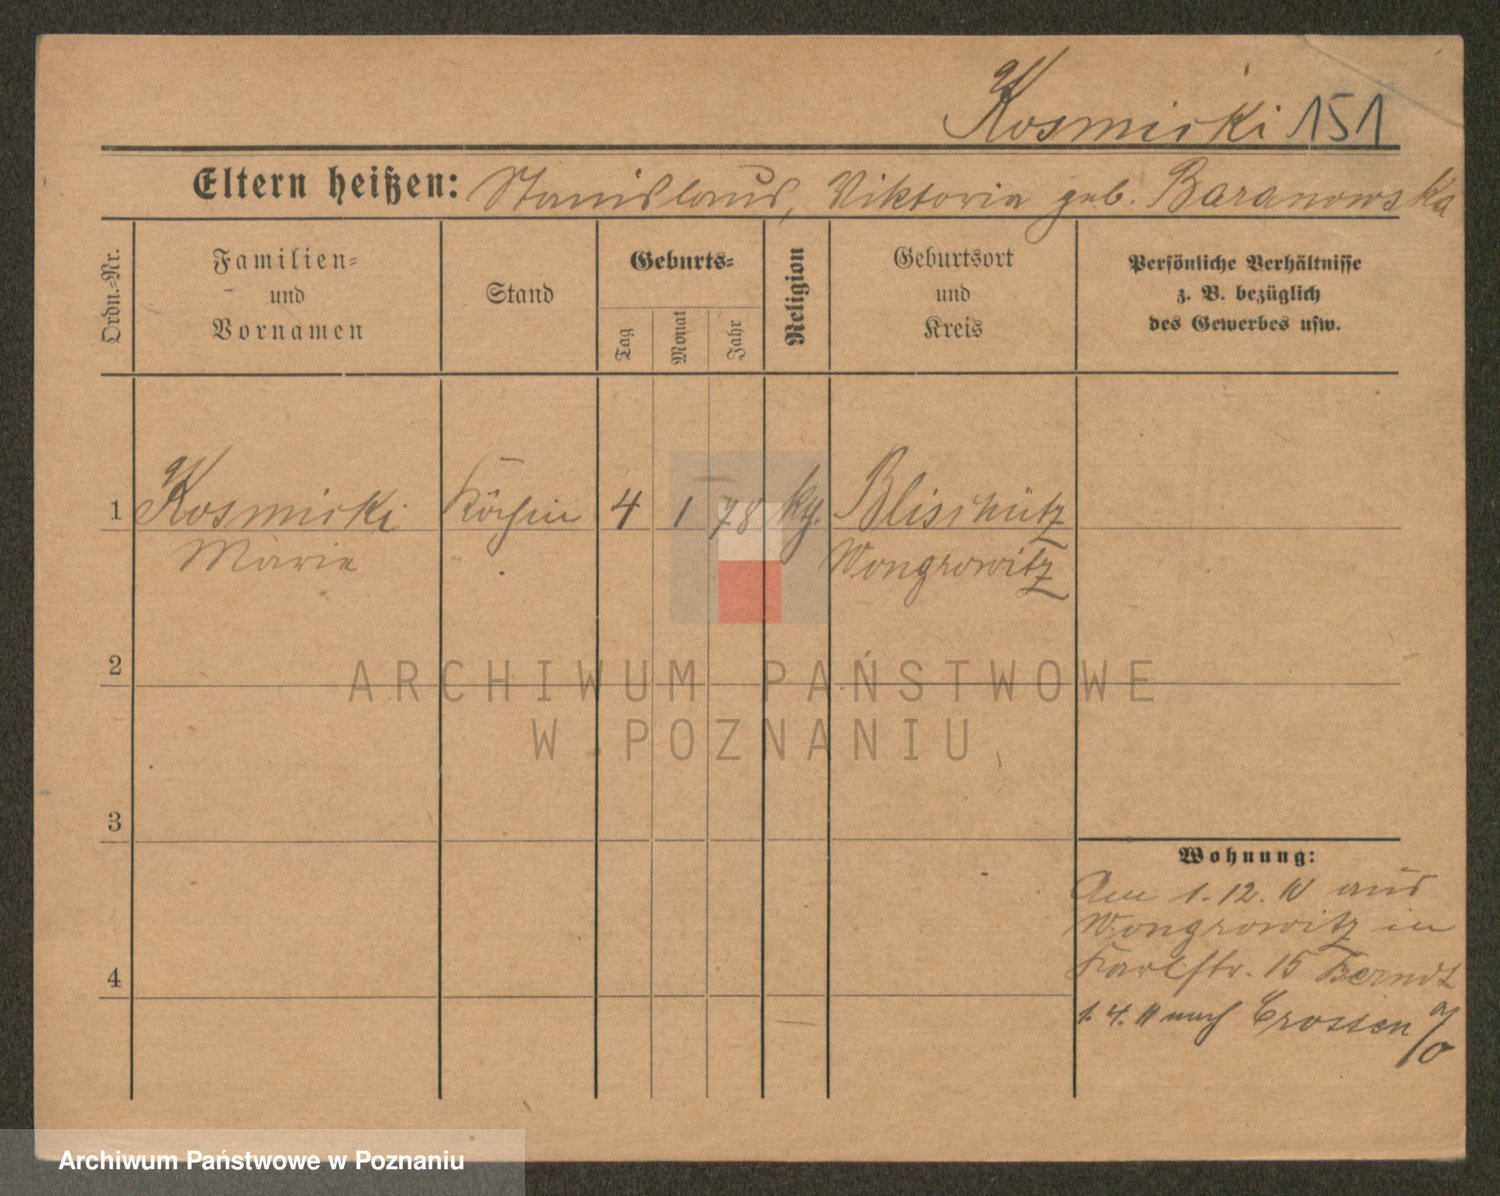 Kosmicki 151
Eltern heißen: Stanislaus, Viktoria geb. Baranowska
Ordn.-Nr.
Familien-
und
Vornamen
Stand
Geburts-
Tag
Monat
Jahr
Religion
Geburtsort
und
Kreis
Persönliche Verhältnisse
z. B. bezüglich
des Gewerbes usw.
1 Kosmicki Köchin 4 1 78 Blischütz
Marie Wongrowitz
2
ARCHIWUM PAŃSTWOWE
W POZNANIU
3
Wohnung:
Am 1. 12. 10 aus
Wongrowitz in
Karlstr. 15 Berndt
4
1. 4. 11 nach Crossen a/o
Archiwum Państwowe w Poznaniu